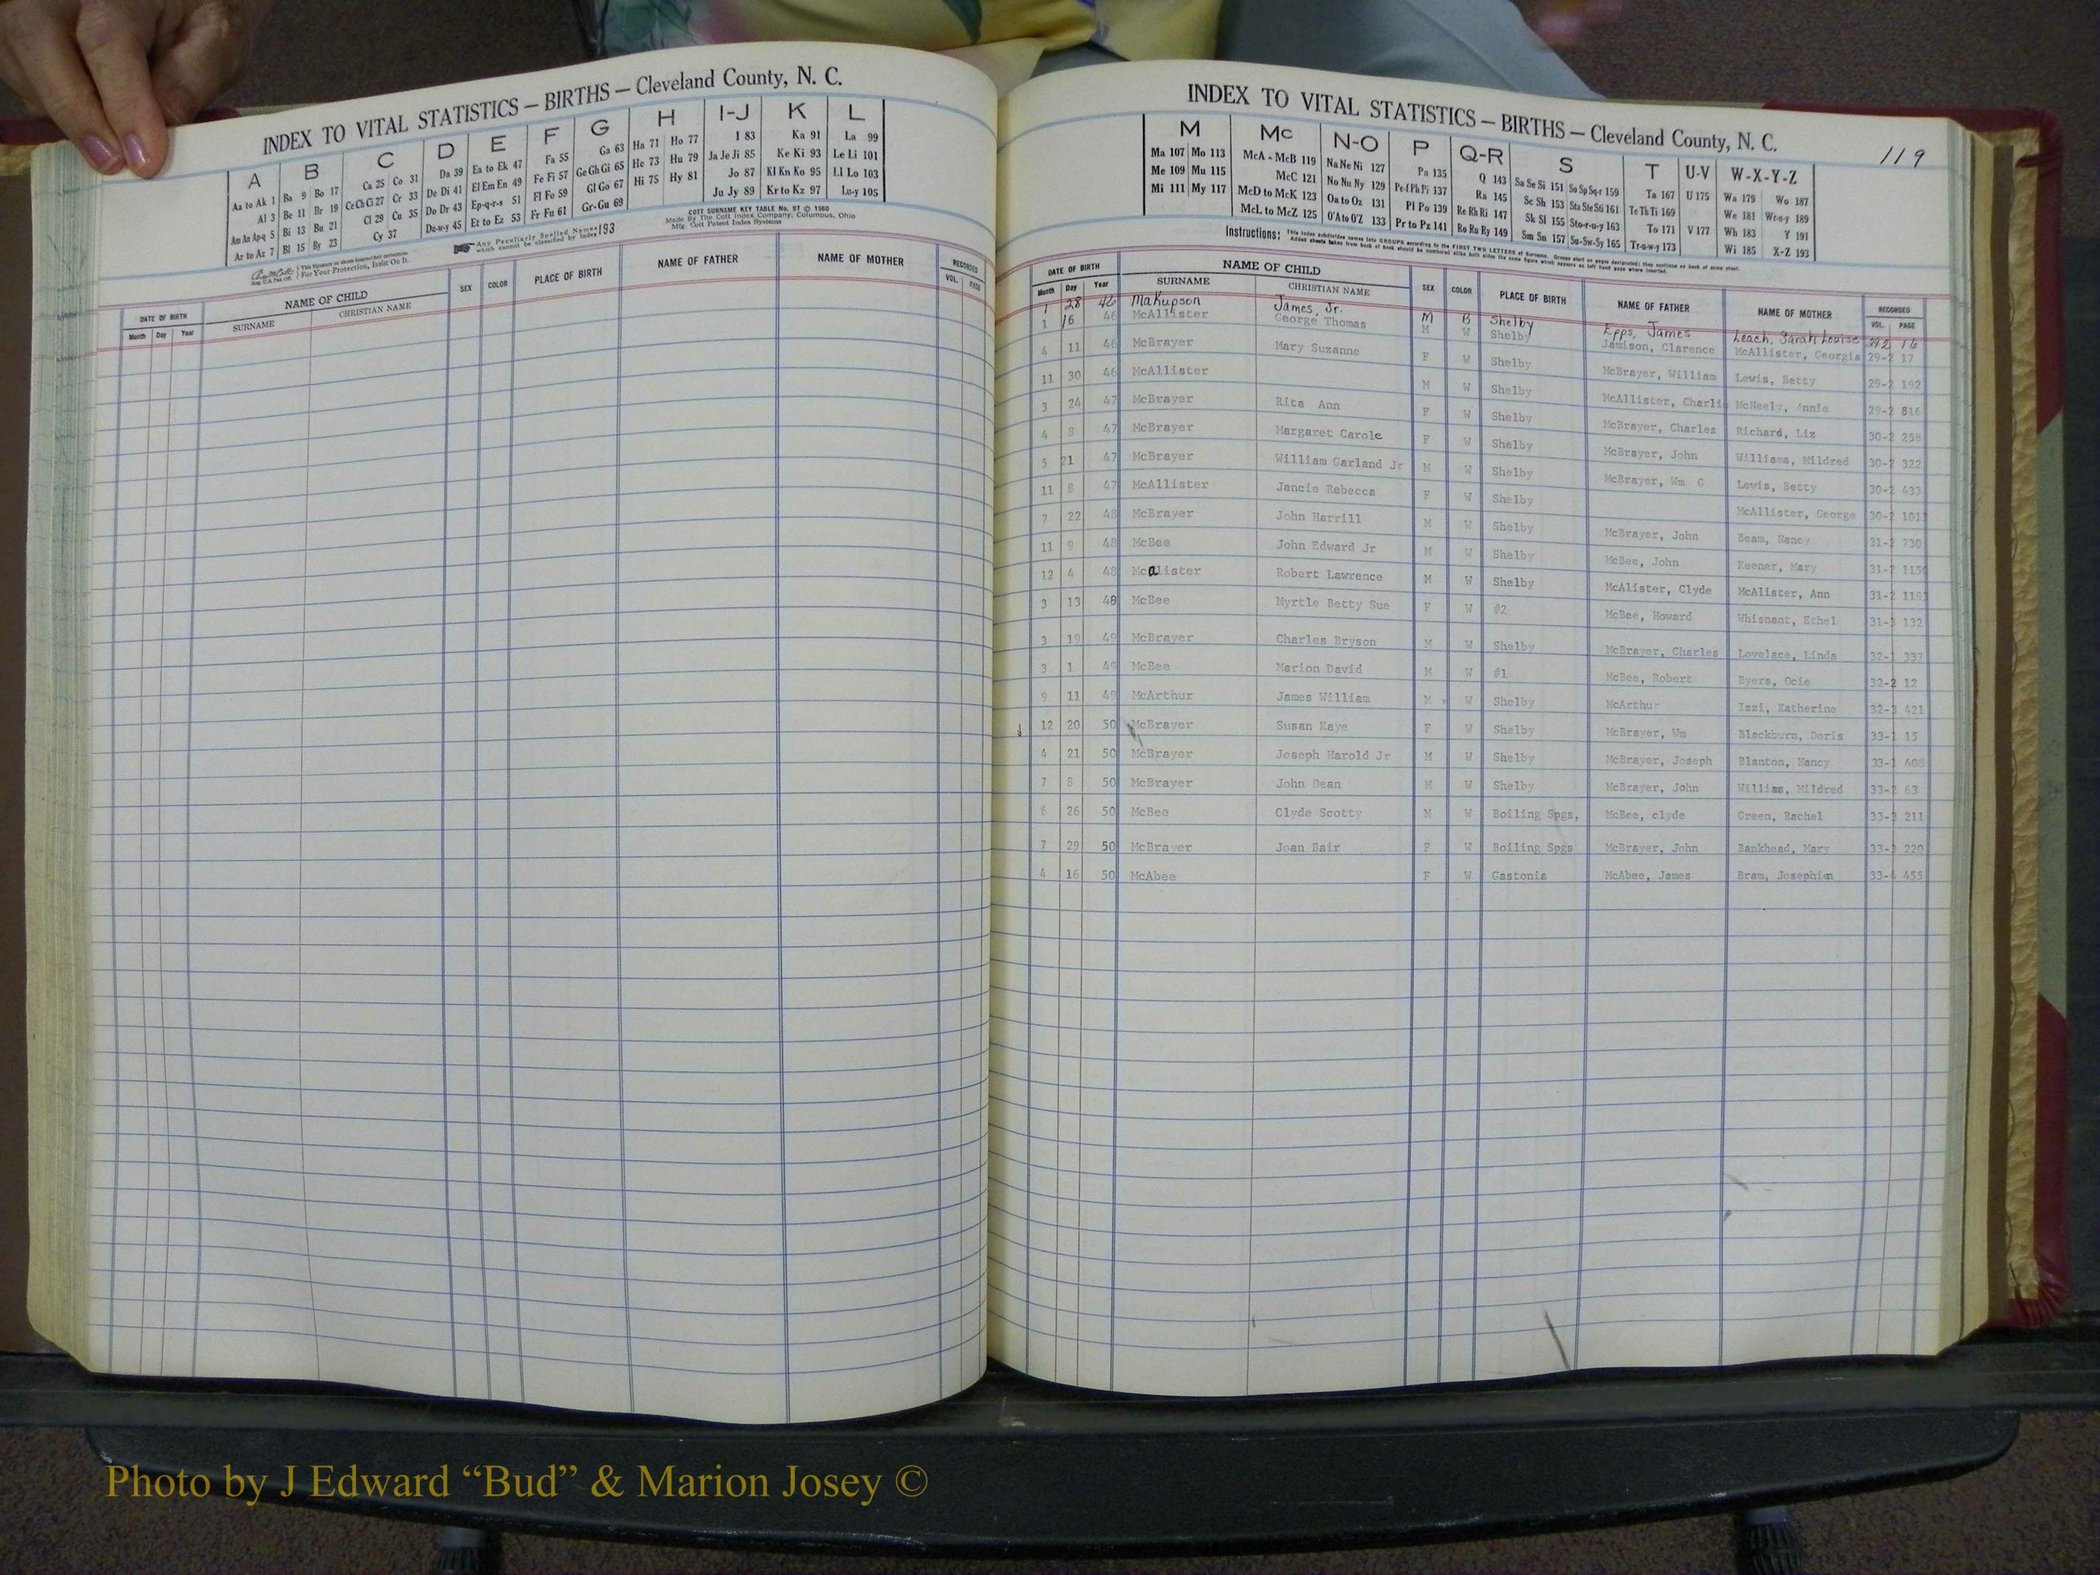 INDEX TO VITAL STATISTICS — BIRTHS — Cleveland County, N. C.
A B C D E F G H I-J K L
Aa to Ak 1 Ba 9 Bo 17 Ca 25 Co 31 Da 39 Ea to Ek 47 Fa 55 Ga 63 Ha 71 Ho 77 I 83 Ka 91 La 99
Al 3 Be 11 Br 19 Ce Ch Ci 27 Cr 33 De Di 41 El Em En 49 Fe Fi 57 Ge Gh Gi 65 He 73 Hu 79 Ja Je Ji 85 Ke Ki 93 Le Li 101
Am An Ap-q 5 Bi 13 Bu 21 Cl 29 Cu 35 Do Dr 43 Ep-q-r-s 51 Fl Fo 59 Gl Go 67 Hi 75 Hy 81 Jo 87 Kl Kn Ko 95 Ll Lo 103
Ar to Az 7 Bl 15 By 23 Cy 37 Du-w-y 45 Et to Ez 53 Fr Fu 61 Gr-Gu 69 Ju Jy 89 Kr to Kz 97 Lu-y 105
COTT SURNAME KEY TABLE No. 97 © 1960
Made By The Cott Index Company, Columbus, Ohio
Mfg. Cott Patent Index Systems
Any Peculiarly Spelled Names which cannot be classified by Index 193
For Your Protection, Insist On It.
DATE OF BIRTH NAME OF CHILD SEX COLOR PLACE OF BIRTH NAME OF FATHER NAME OF MOTHER RECORDED
Month Day Year SURNAME CHRISTIAN NAME VOL. PAGE
INDEX TO VITAL STATISTICS — BIRTHS — Cleveland County, N. C.
119
M Mc N-O P Q-R S T U-V W-X-Y-Z
Ma 107 Mo 113 McA - McB 119 Na Ne Ni 127 Pa 135 Q 143 Sa Se Si 151 So Sp Sq-r 159 Ta 167 U 175 Wa 179 Wo 187
Me 109 Mu 115 McC 121 No Nu Ny 129 Pe-f Ph Pi 137 Ra 145 Sc Sh 153 Sta Ste Sti 161 Te Th Ti 169 We 181 Wr-u-y 189
Mi 111 My 117 McD to McK 123 Oa to Oz 131 Pl Po 139 Re Rh Ri 147 Sk Sl 155 Sto-r-u-y 163 To 171 V 177 Wh 183 Y 191
McL to McZ 125 O'A to O'Z 133 Pr to Pz 141 Ro Ru Ry 149 Sm Sn 157 Su-Sw-Sy 165 Tr-u-w-y 173 Wi 185 X-Z 193
Instructions:
DATE OF BIRTH NAME OF CHILD SEX COLOR PLACE OF BIRTH NAME OF FATHER NAME OF MOTHER RECORDED
Month Day Year SURNAME CHRISTIAN NAME VOL. PAGE
1 28 42 Makupson James, Jr. M B Shelby Epps, James Leach, Sarah Louise 242 16
1 16 46 McAllister George Thomas M W Shelby Jamison, Clarence McAllister, Georgia 29-2 17
4 11 46 McBrayer Mary Suzanne F W Shelby McBrayer, William Lewis, Betty 29-2 192
11 30 46 McAllister M W Shelby McAllister, Charli McNeely, Annie 29-2 816
3 24 47 McBrayer Rita Ann F W Shelby McBrayer, Charles Richard, Liz 30-2 258
4 8 47 McBrayer Margaret Carole F W Shelby McBrayer, John Williams, Mildred 30-2 322
5 21 47 McBrayer William Garland Jr M W Shelby McBrayer, Wm G Lewis, Betty 30-2 433
11 8 47 McAllister Jancie Rebecca F W Shelby McAllister, George 30-2 1011
7 22 48 McBrayer John Harrill M W Shelby McBrayer, John Beam, Nancy 31-2 730
11 9 48 McBee John Edward Jr M W Shelby McBee, John Keener, Mary 31-2 1150
12 4 48 McAlister Robert Lawrence M W Shelby McAlister, Clyde McAlister, Ann 31-2 1193
3 13 48 McBee Myrtle Betty Sue F W #2 McBee, Howard Whisnant, Ethel 31-3 132
3 19 49 McBrayer Charles Bryson M W Shelby McBrayer, Charles Lovelace, Linda 32-1 337
3 1 49 McBee Marion David M W #1 McBee, Robert Byers, Ocie 32-2 12
9 11 49 McArthur James William M W Shelby McArthur Izzi, Katherine 32-3 421
12 20 50 McBrayer Susan Kaye F W Shelby McBrayer, Wm Blackburn, Doris 33-1 15
4 21 50 McBrayer Joseph Harold Jr M W Shelby McBrayer, Joseph Blanton, Nancy 33-1 408
7 8 50 McBrayer John Dean M W Shelby McBrayer, John Willias, Mildred 33-2 63
6 26 50 McBee Clyde Scotty M W Boiling Spgs, McBee, clyde Green, Rachel 33-3 211
7 29 50 McBrayer Joan Bair F W Boiling Spgs McBrayer, John Bankhead, Mary 33-3 220
4 16 50 McAbee F W Gastonia McAbee, James Bram, Josephien 33-4 455
Photo by J Edward “Bud” & Marion Josey ©